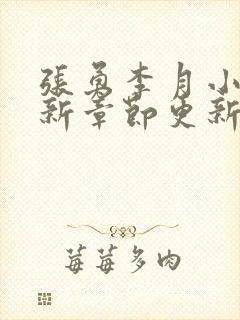 張勇李月小
新章節更新
莓莓多肉